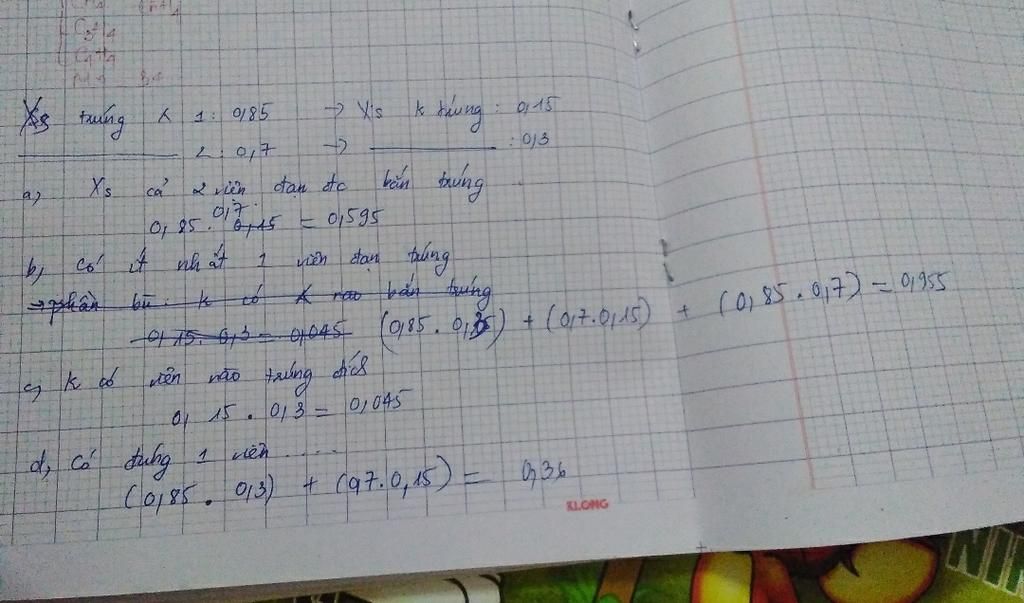 C₃H₄
C₄H₄
Xs trúng lần 1 : 0,85 → Xs k trúng : 0,15
2 : 0,7 → : 0,3
a, Xs cả 2 viên đạn đc bắn trúng
0,85 . 0,7 = 0,595
b, Có ít nhất 1 viên đạn trúng
→ phần bù : k có nào bắn trúng
0,15 . 0,3 = 0,045 (0,85 . 0,3) + (0,7 . 0,15) + (0,85 . 0,7) = 0,955
c, k có viên nào trúng đích
0,15 . 0,3 = 0,045
d, Có đúng 1 viên .....
(0,85 . 0,3) + (0,7 . 0,15) = 0,36
KLONG